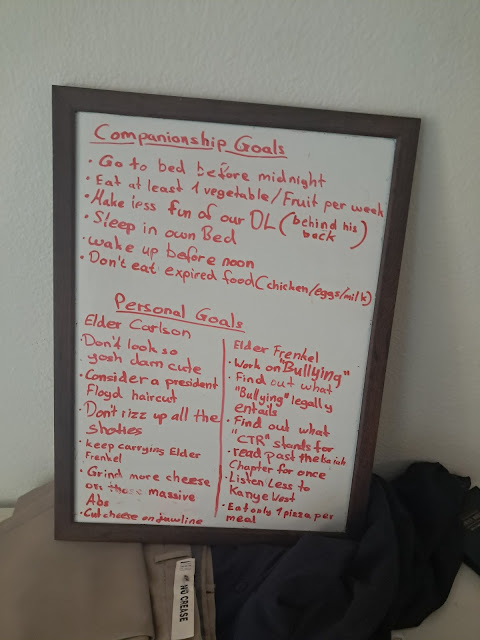 Companionship Goals
• Go to bed before midnight
• Eat at least 1 vegetable/Fruit per week
• Make less fun of our DL (behind his back)
• Sleep in own Bed
• wake up before noon
• Don't eat expired food (chicken/eggs/milk)
Personal Goals
Elder Carlson
• Don't look so
gosh darn cute
• Consider a president
Floyd haircut
• Don't rizz up all the
shoties
• keep carrying Elder
Frenkel
• Grind more cheese
on those massive
Abs
• Cut cheese on jawline
Elder Frenkel
• Work on "Bullying"
• Find out what
"Bullying" legally
entails
• Find out what
"CTR" stands for
• read past the Isaiah
Chapter for once
• Listen Less to
Kanye West
• Eat only 1 pizza per
meal
NO CREASE